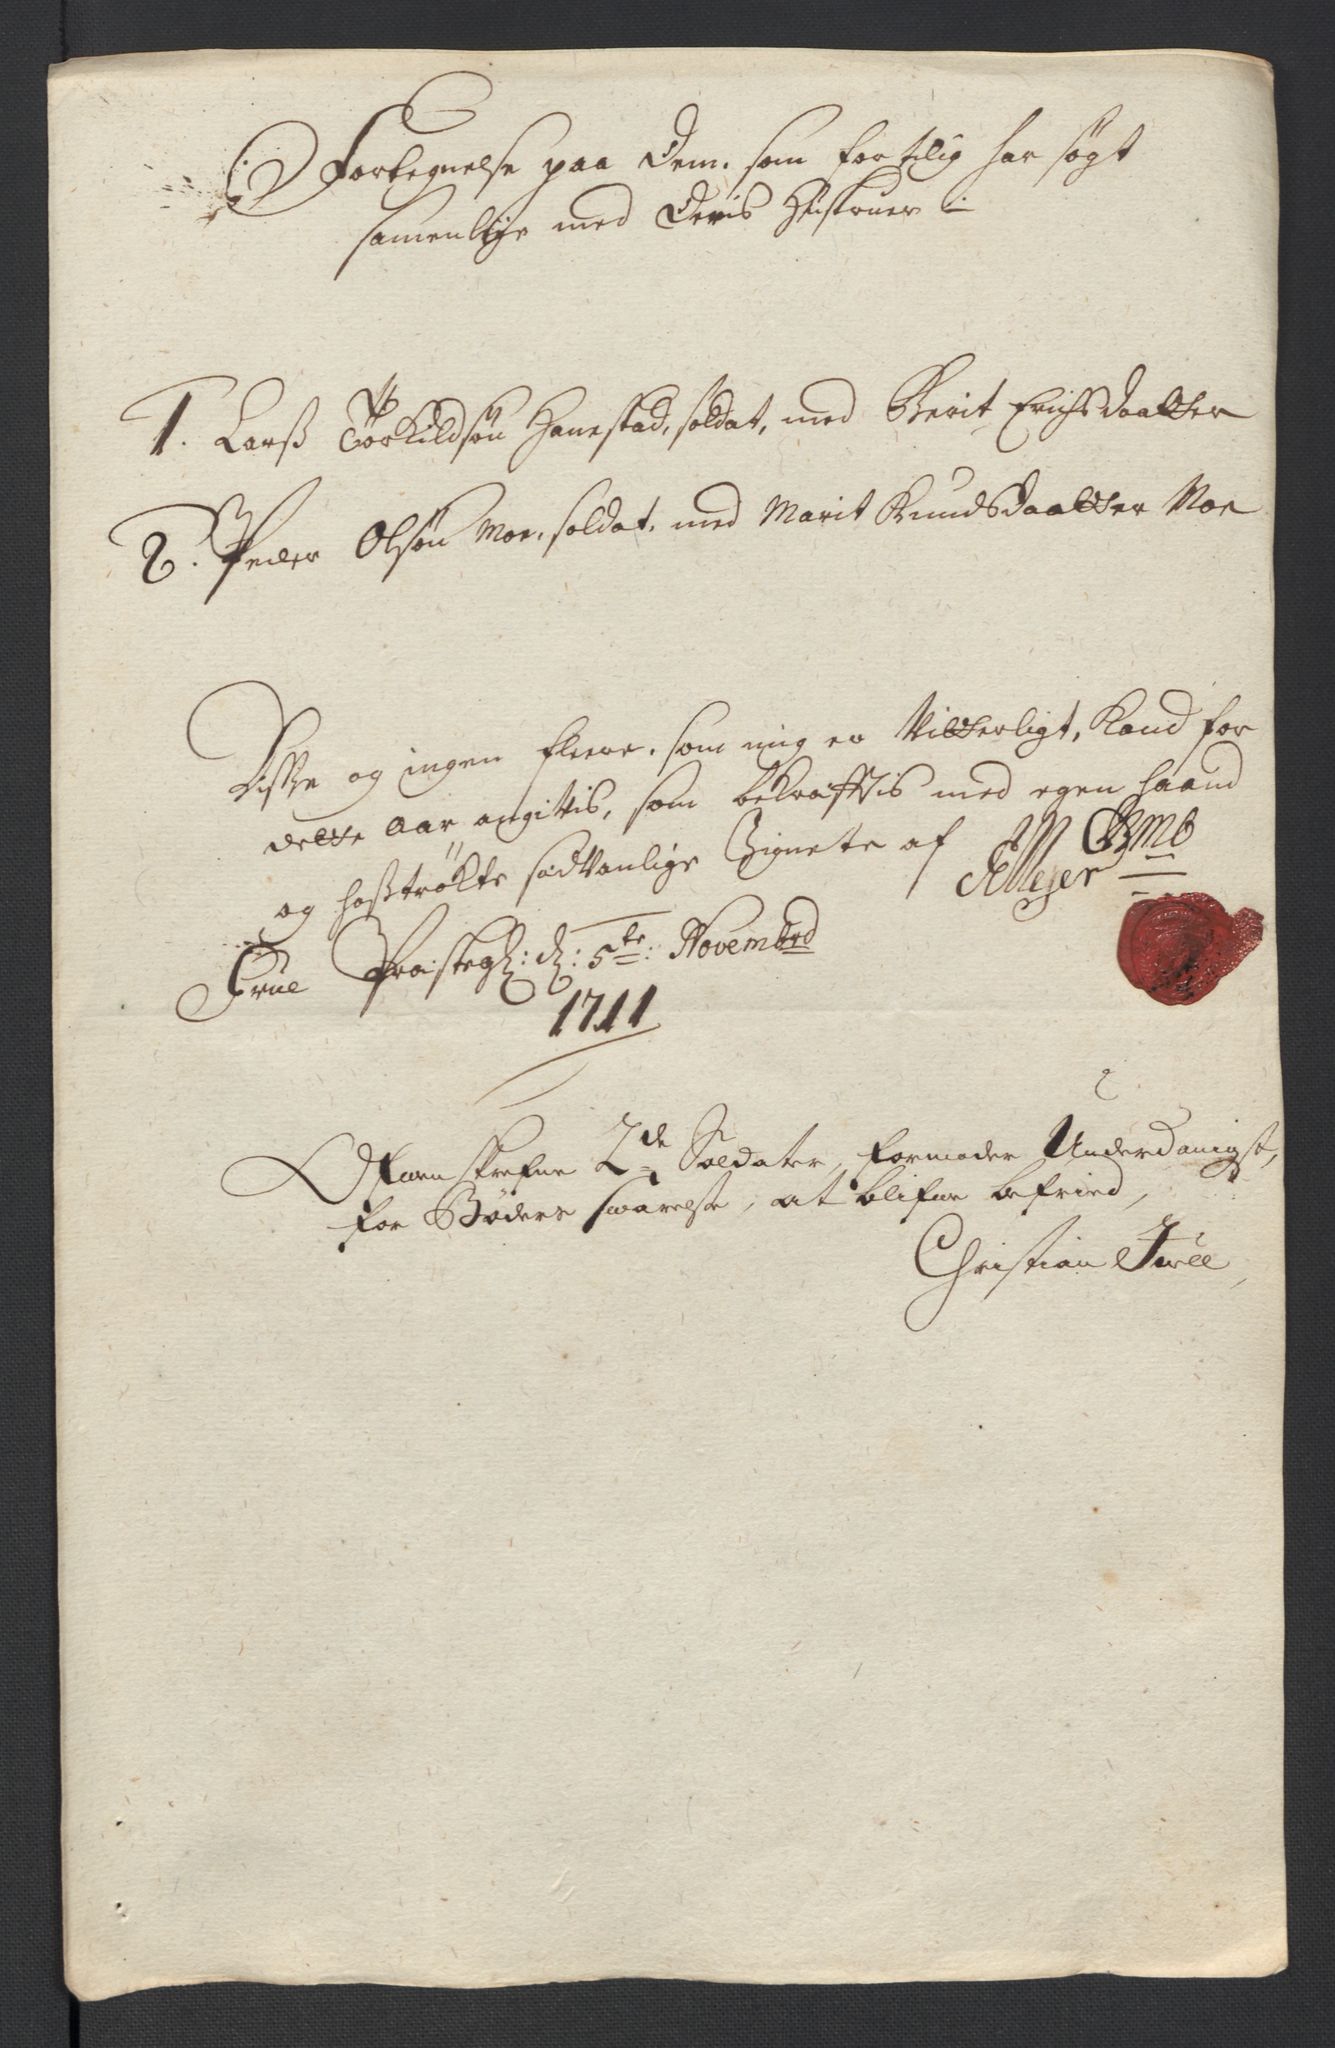 Fortegnelse paa Dem. som for tilig har søgt
samenleye med Deris Hüstruer
1. Larß Torkildsøn Hanestad, soldat, med Berit Erichsdaatter
2. Peder Olsøn Moe, soldat, med Marit Knudsdaatter Moe
Disse og ingen fleere, som mig er Vitterligt, Kand for
dette Aar angivis, som bekræfftis med egen haand
og hoßtrökte sædvanlige Zignete af
Præstegl: d: 5te: Novembrd
1711
Ofwenskrefne 2de Soldater, formoder Underdanigst,
for Böders swarelse, at blifwe befried,
Christian